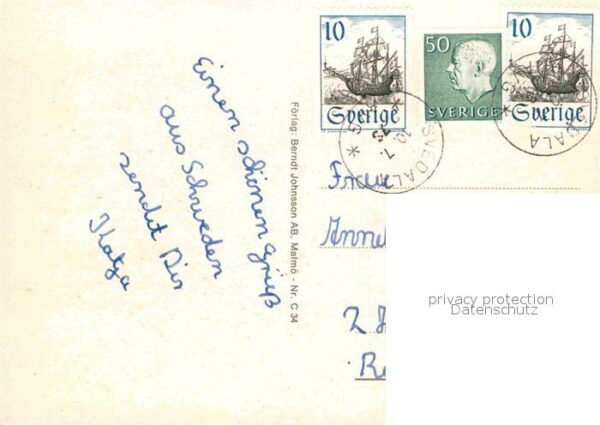 Einen schönen Gruß
aus Schweden
sendet Dir
Katja
Förlag: Berndt Johnsson AB, Malmö - Nr. C 34
10
Sverige
50
SVERIGE
10
Sverige
SVEDALA
10.7.
73
DALA
Frau
privacy protection
Datenschutz